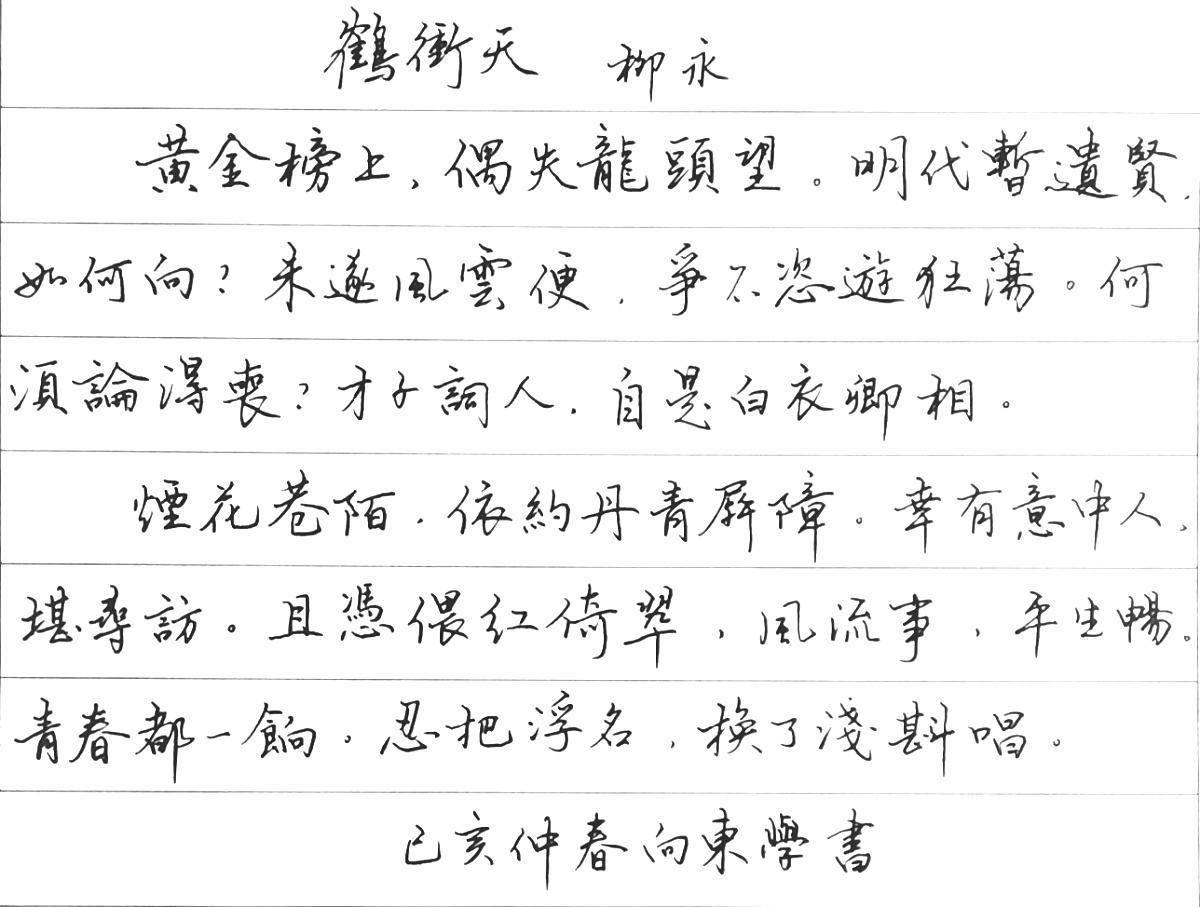 鶴衝天 柳永
黃金榜上，偶失龍頭望。明代暫遺賢，
如何向？未遂風雲便，爭不恣遊狂蕩。何
須論得喪？才子詞人，自是白衣卿相。
煙花巷陌，依約丹青屏障。幸有意中人，
堪尋訪。且憑偎紅倚翠，風流事，平生暢。
青春都一餉，忍把浮名，換了淺斟唱。
己亥仲春向東學書